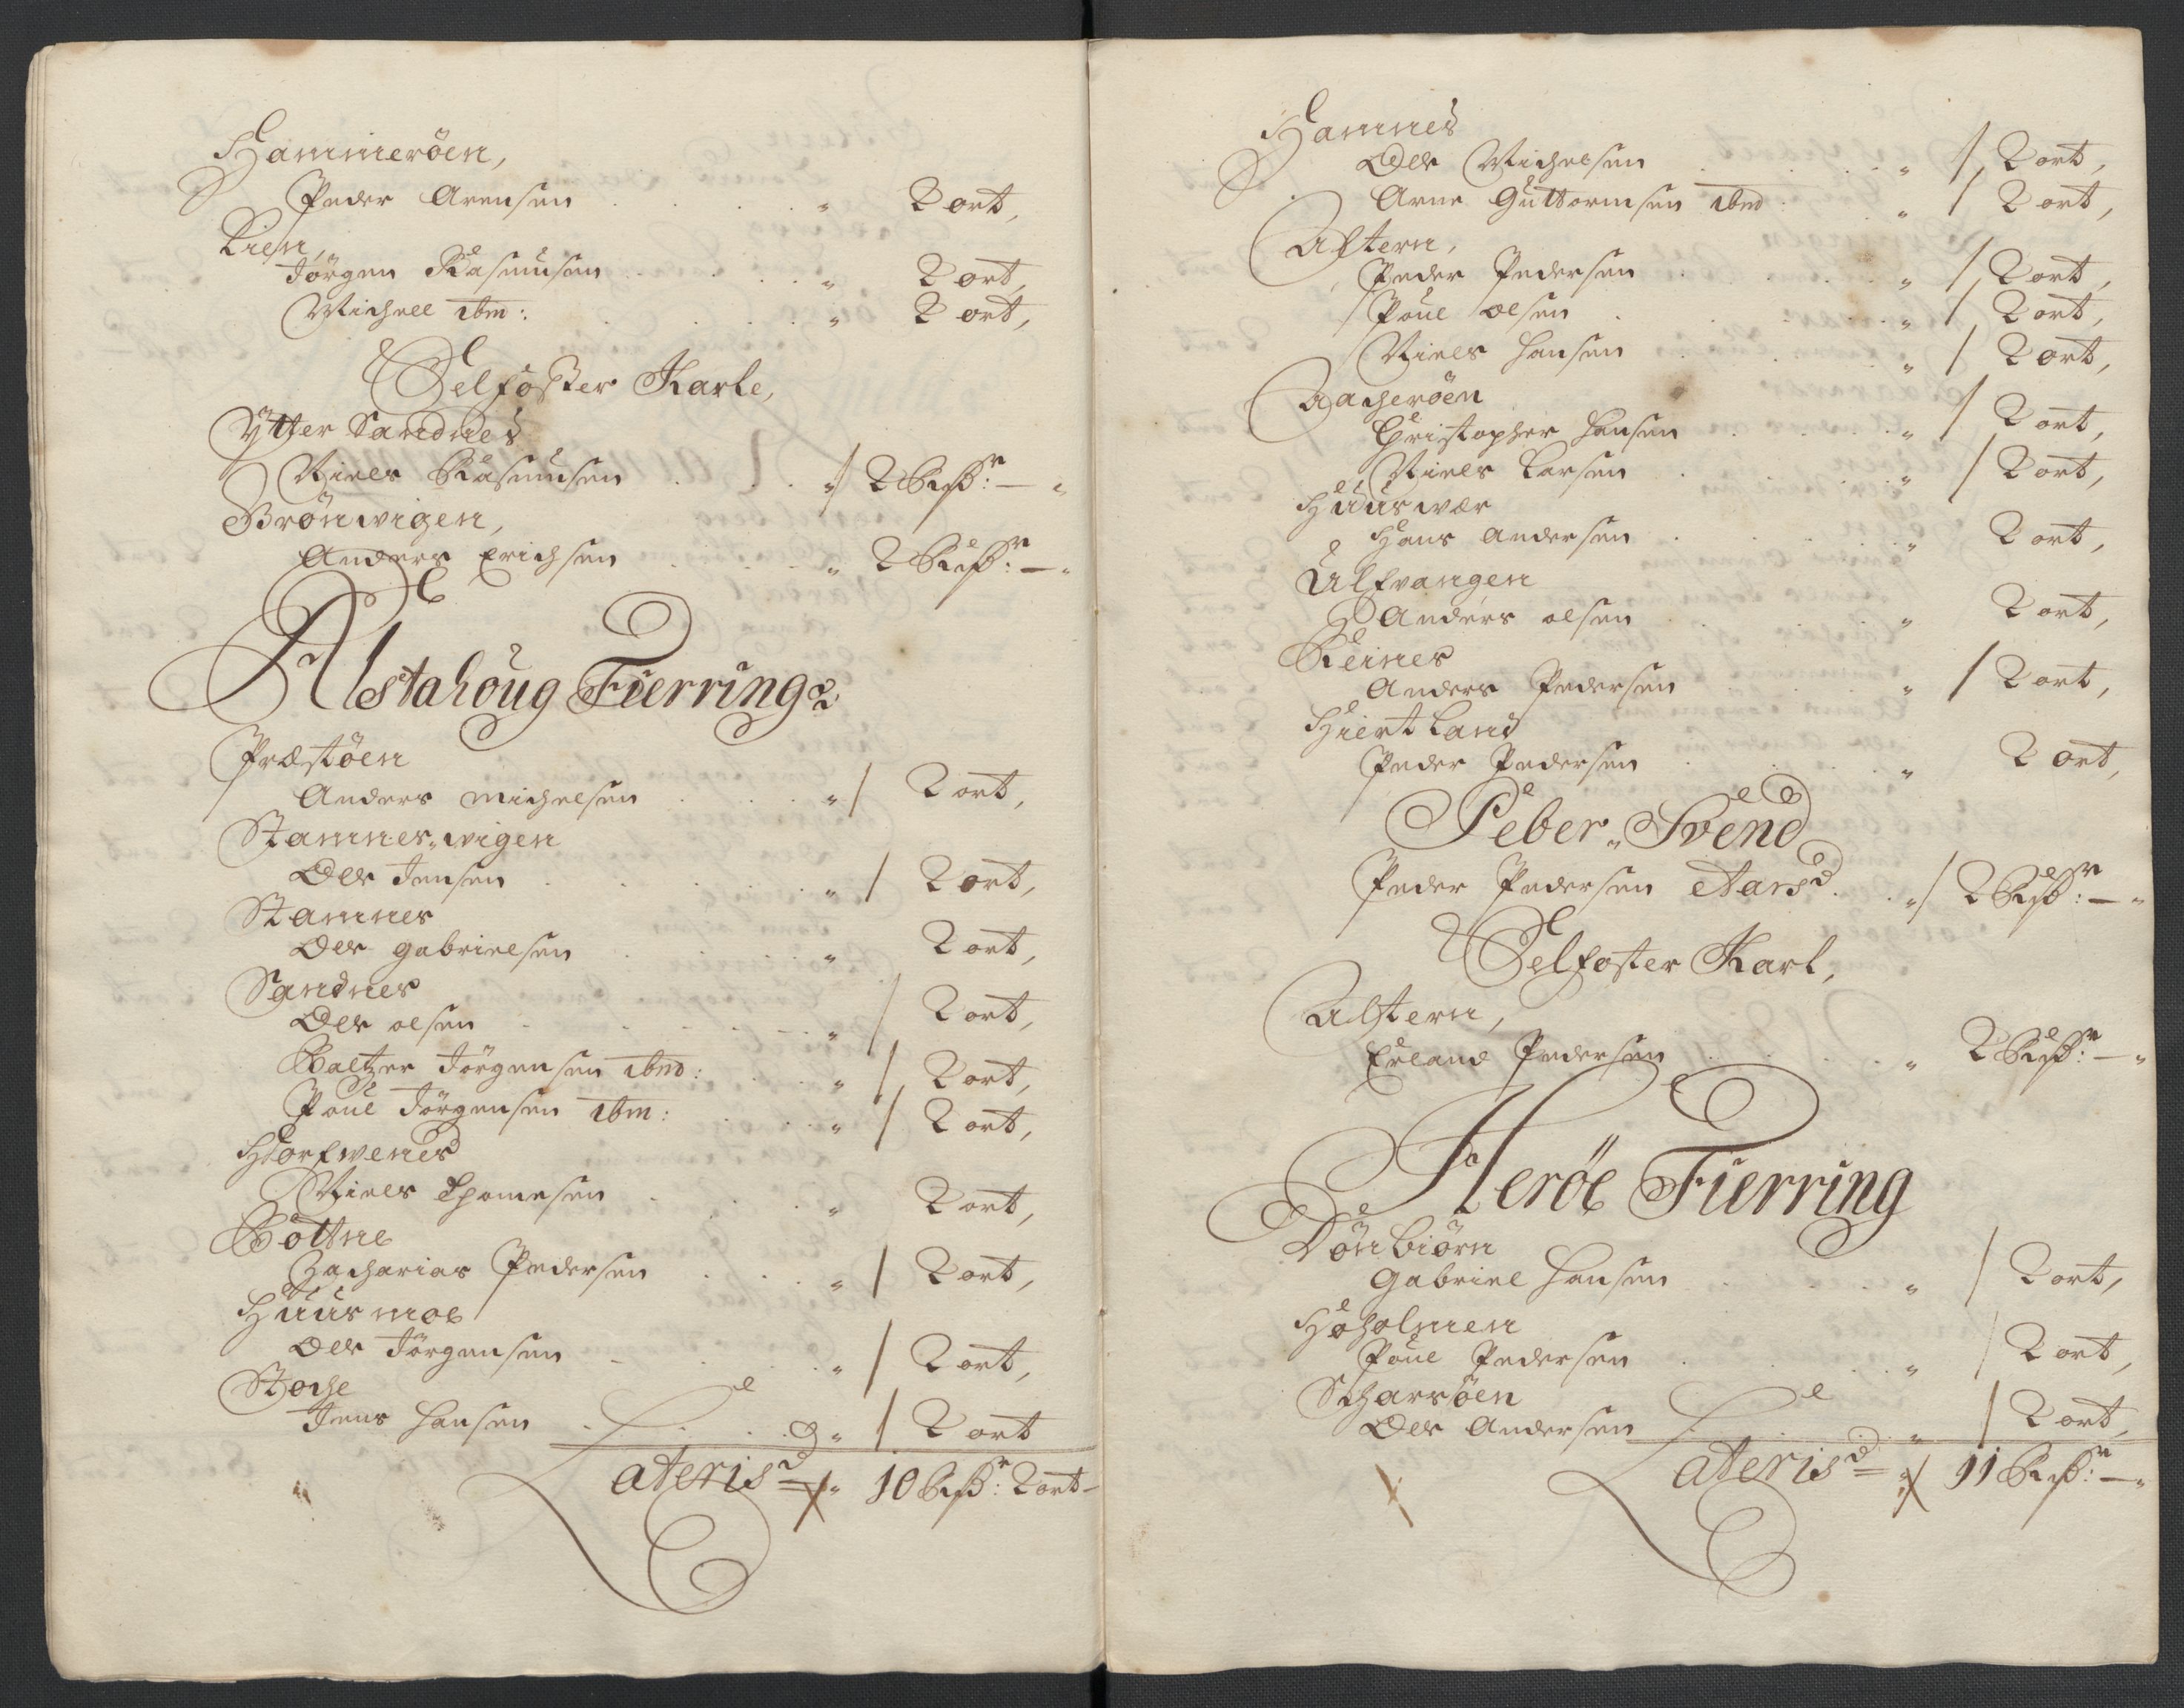 Hammeröen,
Peder Arensen . . . . „ 2 ort,
Lien,
Jörgen Rasmusen . . . . „ 2 ort,
Michell ibm: . . . . „ 2 ort,
Selfoster Karle,
Ytter Sandnes
Niels Rasmusen . . . „ 2 Rixdr: — „
Brönwigen,
Anders Erichsen . . . „ 2 Rixdr: — „
Alstahoug Fierring
Præstöen
Anders Michelsen . . . „ / 2 ort,
Stamnes-wigen
Ole Jensen . . . „ / 2 ort,
Stamnes
Ole Gabrielsen . . . „ 2 ort,
Sandnes
Ole Olsen . . . „ / 2 ort,
Baltzer Jörgensen ibm: . . „ / 2 ort,
Poul Jörgensen ibm: . . „ / 2 ort,
Horfwenes
Niels Thomesen . . . „ 2 ort,
Bottne
Zacharias Pedersen . . . „ / 2 ort,
Huusmoe
Ole Jörgensen . . . „ / 2 ort,
Stoche
Jens Hansen . . . „ / 2 ort
Lateris „ 10 Rixdr: 2 ort -
Hamnes
Ole Michelsen . . . „ / 2 ort,
Arne Guttormsen ibm: . „ / 2 ort,
Alstern,
Peder Pedersen . . . „ / 2 ort,
Poul Olsen . . . „ / 2 ort,
Niels Hansen . . . „ / 2 ort,
Aacheröen
Christopher Hansen . . . „ / 2 ort,
Niels Larsen . . . „ / 2 ort,
Huuswær
Hans Andersen . . . „ 2 ort,
Ulfvangen
Anders Olsen . . . „ 2 ort,
Reines
Anders Pedersen . . . „ / 2 ort,
Hiertland
Peder Pedersen . . . „ 2 ort,
Peber-Svend
Peder Pedersen Aars . . „ / 2 Rixdr: — „
Selfoster Karl,
Alstern,
Erland Pedersen . . . „ 2 Rixdr: — „
Heröe Fierring
Dönbiörn
Gabriel Hansen . . . „ / 2 ort,
Høholmen
Poul Pedersen . . . „ / 2 ort,
Scharsöen
Ole Andersen . . . „ / 2 ort,
Lateris „ 11 Rixdr: — „